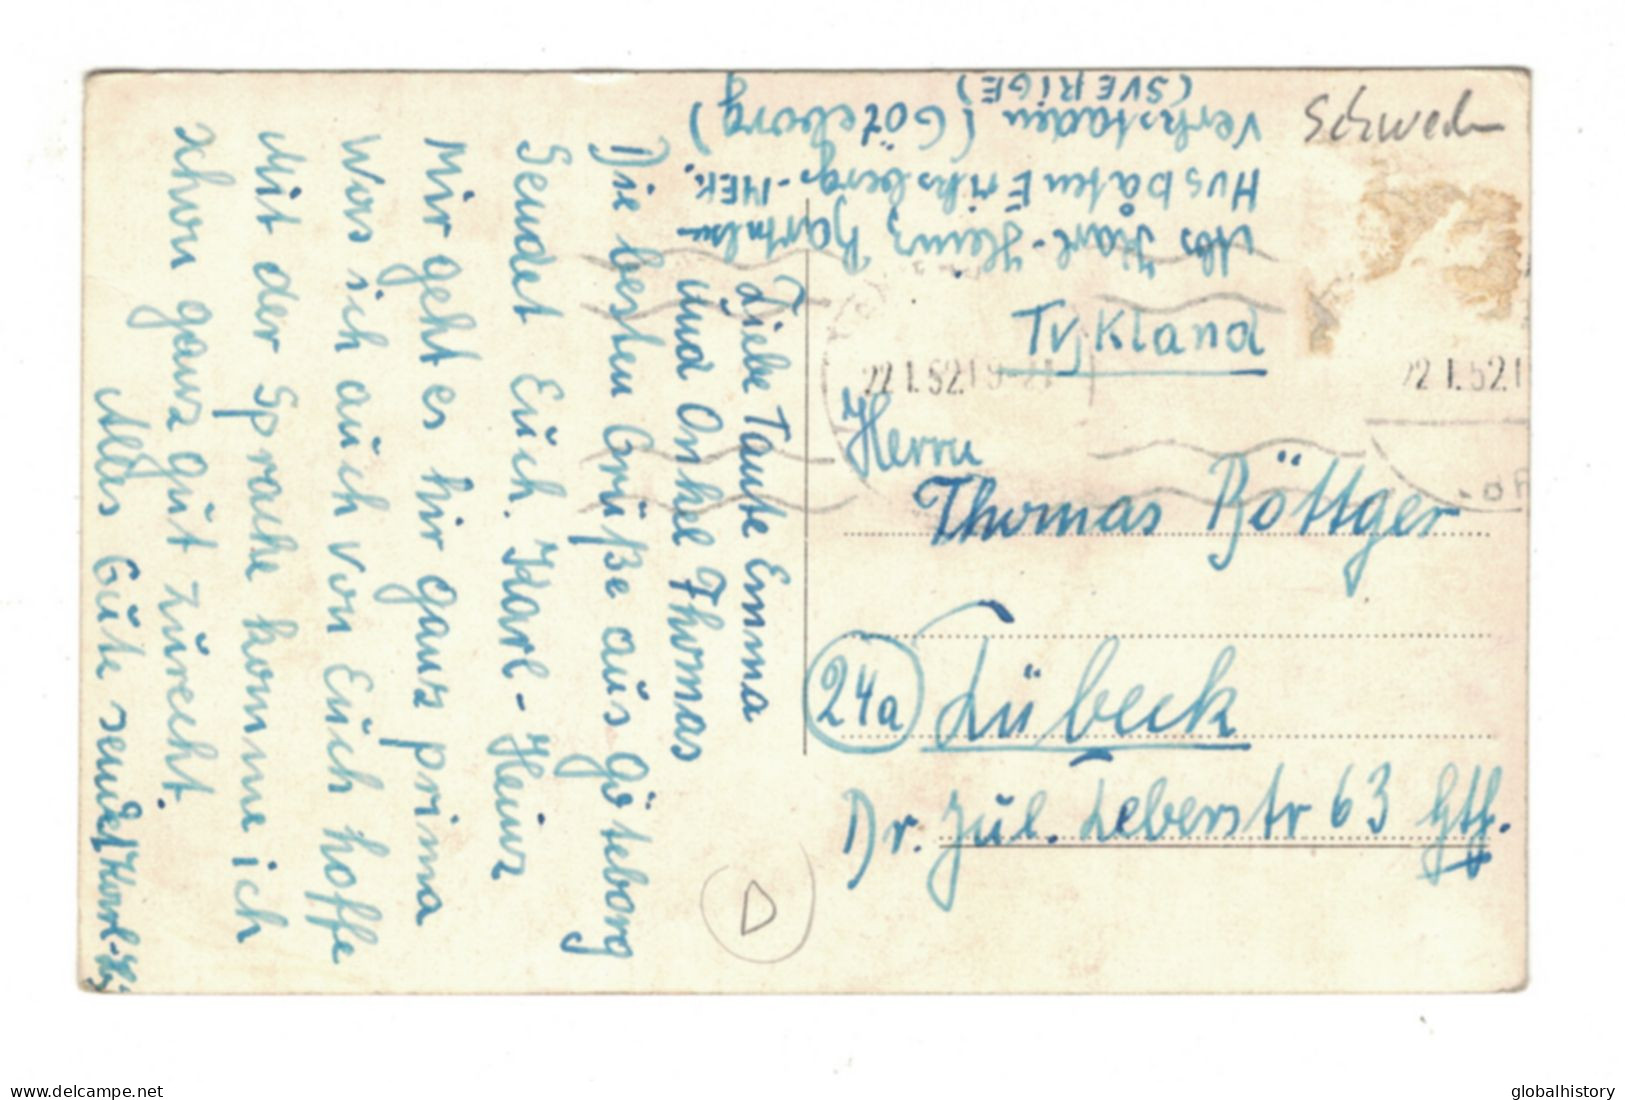 Liebe Tante Emma
und Onkel Thomas
Die besten Grüße aus Göteborg
Sendet Euch. Karl-Heinz
Mir geht es hir ganz prima
Was ich auch von Euch hoffe
Mit der Sprache komme ich
schon ganz gut zurecht.
Alles Gute sendet Karl-Hz
Abs Karl-Heinz
Husbåten Eriksbergs-MEK.
Verkstaden (Göteborg)
(SVERIGE)
Schweden
Tyskland
22.1.52.19-21
22.1.52.1
Herrn
Thomas Böttger
24a Lübeck
Dr. Jul. Leberstr 63 Gtf.
D
All for sale
globalhistory